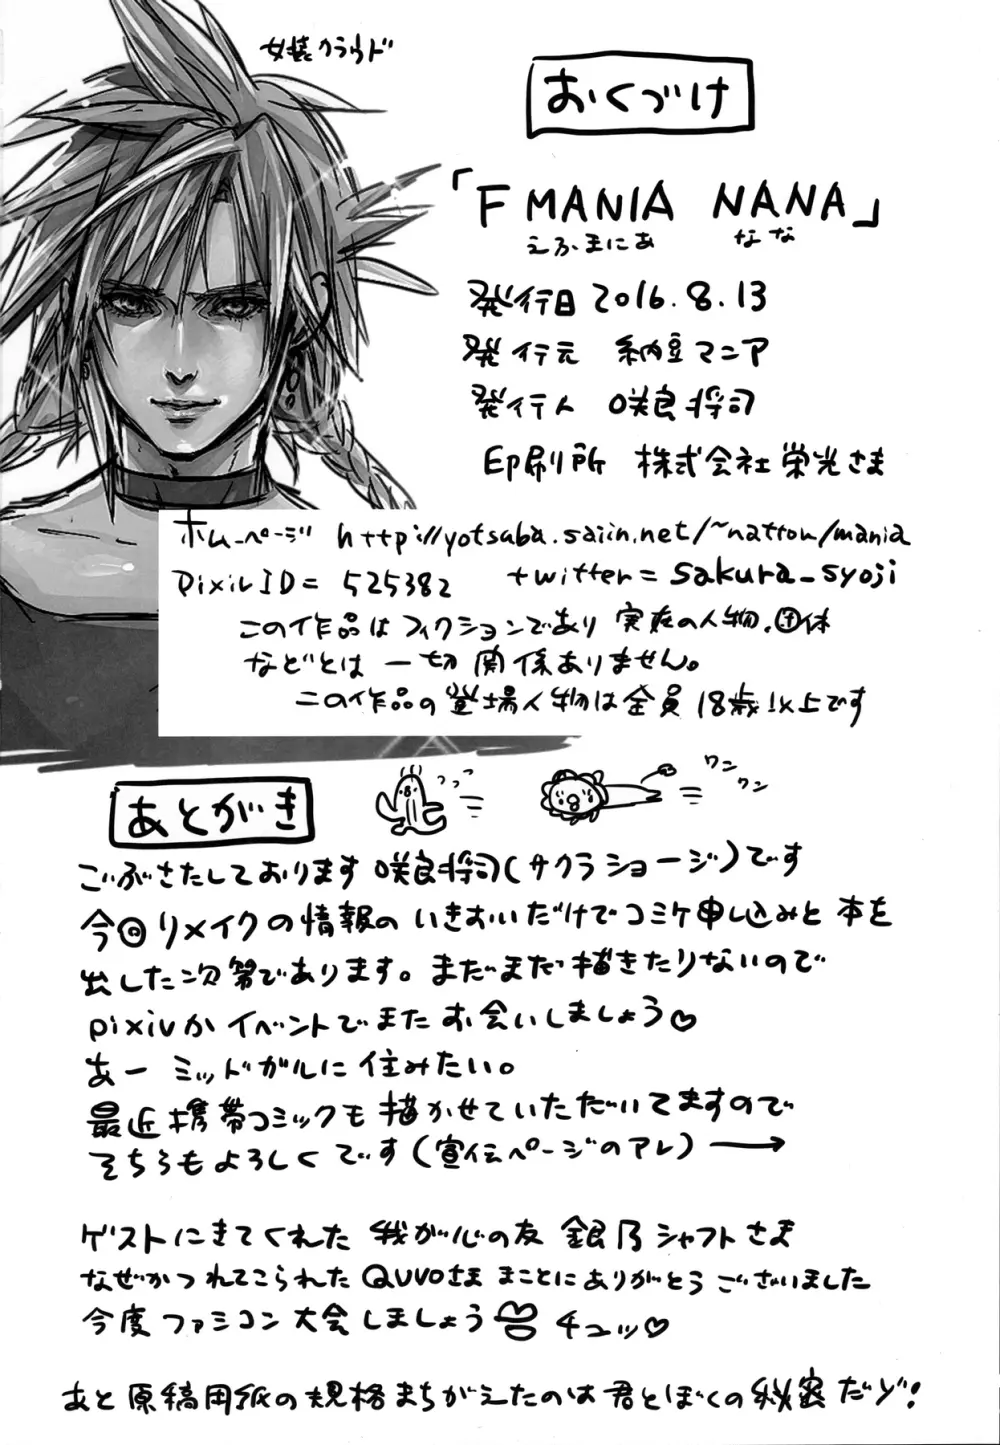 女装クラウド
おくづけ
「F MANIA NANA」
えふまにあ なな
発行日 2016.8.13
発行元 納豆マニア
発行人 咲良将司
印刷所 株式会社栄光さま
ホームページ http://yotsuba.saiin.net/~nattou/mania
Pixiv ID= 525382 twitter= sakura_syoji
この作品はフィクションであり 実在の人物、団体
などとは 一切関係ありません。
この作品の登場人物は全員 18歳以上です
あとがき
っっっ
ワン
ワン
ごぶさたしております 咲良将司(サクラショージ)です
今回リメイクの情報の いきおいだけでコミケ申し込みと 本を
出した次第であります。まだまだ描きたりないので
pixivか イベントでまた お会いしましょう♡
あー ミッドガルに住みたい。
最近携帯コミックも 描かせていただいてますので
そちらもよろしくです(宣伝ページのアレ)→
ゲストにきてくれた 我が心の友 銀乃シャフトさま
なぜかつれてこられた QUVOさま まことにありがとうございました
今度 ファミコン大会しましょう チュッ♡
あと 原稿用紙の規格まちがえたのは 君とぼくの秘密だゾ!